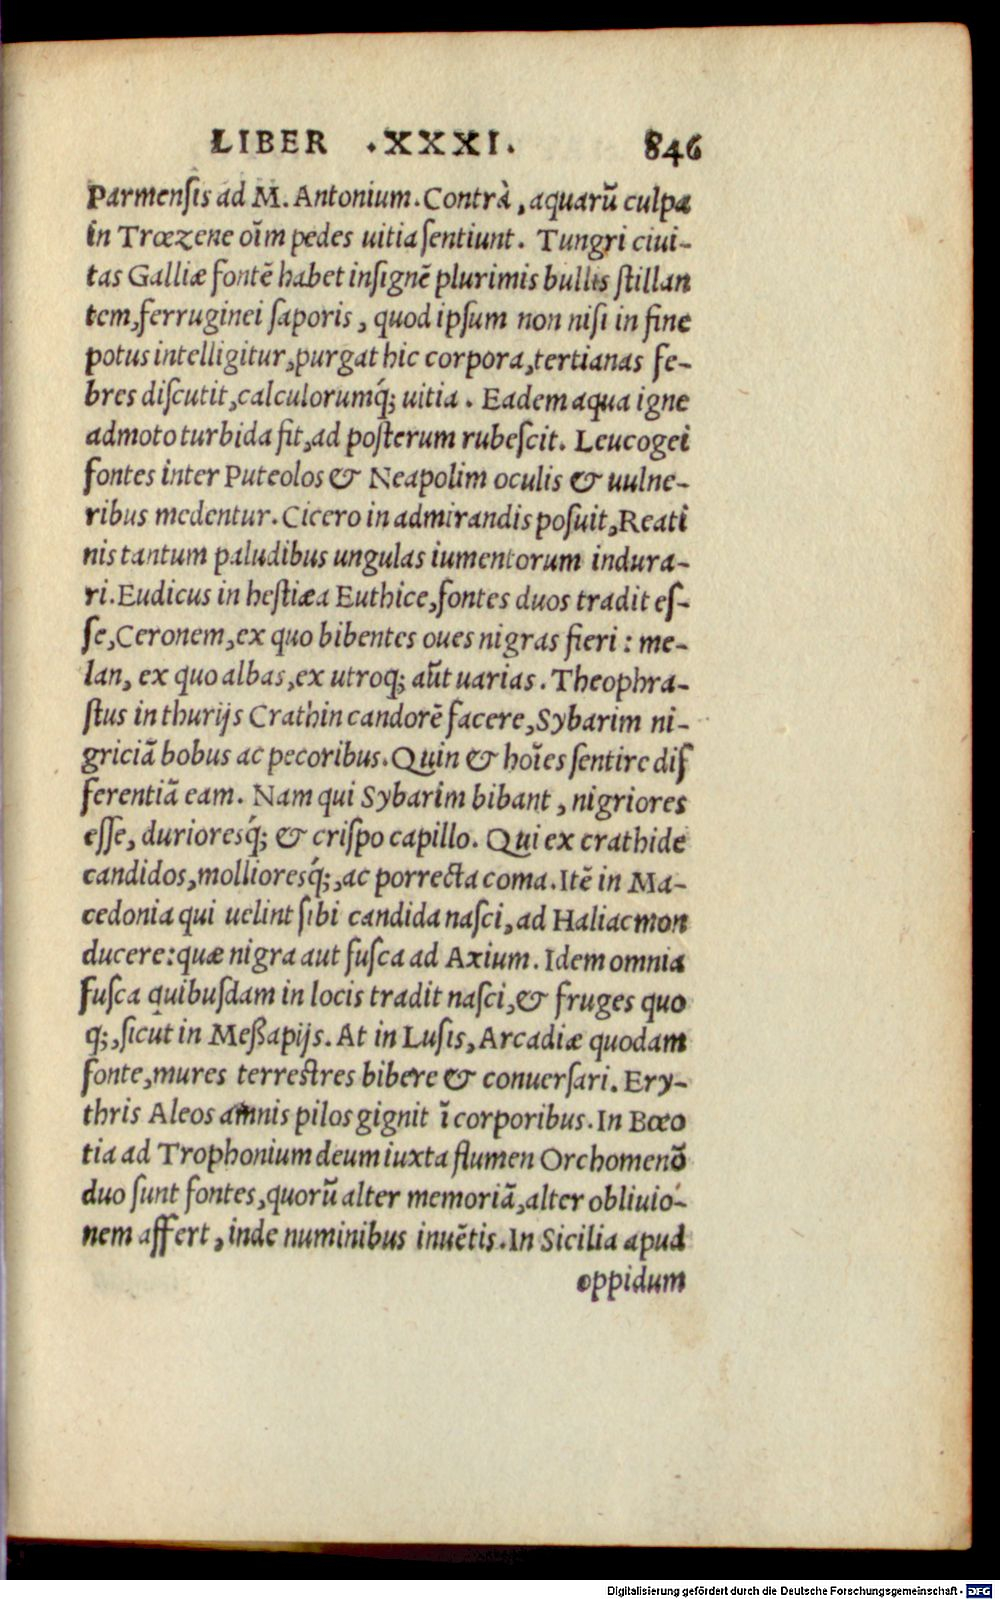 LIBER .XXXI. 846
Parmensis ad M. Antonium. Contrà, aquarũ culpa
in Trœzene oĩm pedes uitia sentiunt. Tungri ciui-
tas Galliæ fontē habet insignē plurimis bullis stillan
tem, ferruginei saporis, quod ipsum non nisi in fine
potus intelligitur, purgat hic corpora, tertianas fe-
bres discutit, calculorumq́; uitia. Eadem aqua igne
admoto turbida fit, ad posterum rubescit. Leucogei
fontes inter Puteolos & Neapolim oculis & uulne-
ribus medentur. Cicero in admirandis posuit, Reati
nis tantum paludibus ungulas iumentorum indura-
ri. Eudicus in hestiæa Euthice, fontes duos tradit es-
se, Ceronem, ex quo bibentes oues nigras fieri: me-
lan, ex quo albas, ex utroq; aũt uarias. Theophra-
stus in thurijs Crathin candorē facere, Sybarim ni-
griciã bobus ac pecoribus. Quin & hoĩes sentire dif
ferentiã eam. Nam qui Sybarim bibant, nigriores
esse, durioresq́; & crispo capillo. Qui ex crathide
candidos, mollioresq́;, ac porrecta coma. Itē in Ma-
cedonia qui uelint sibi candida nasci, ad Haliacmon
ducere: quæ nigra aut fusca ad Axium. Idem omnia
fusca quibusdam in locis tradit nasci, & fruges quo
q;, sicut in Meßapijs. At in Lusis, Arcadiæ quodam
fonte, mures terrestres bibere & conuersari. Ery-
thris Aleos amnis pilos gignit ĩ corporibus. In Bœo
tia ad Trophonium deum iuxta flumen Orchomenõ
duo sunt fontes, quorũ alter memoriã, alter obliuio-
nem affert, inde numinibus inuētis. In Sicilia apud
oppidum
Digitalisierung gefördert durch die Deutsche Forschungsgemeinschaft - DFG